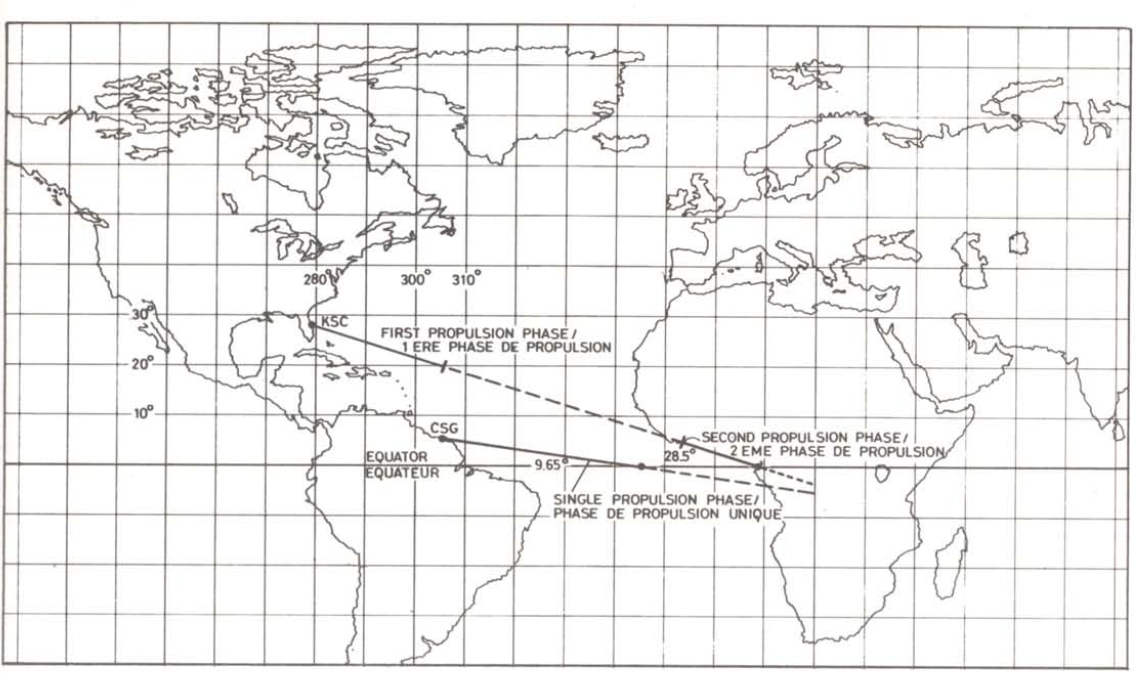 280° 300° 310°
30°
KSC
FIRST PROPULSION PHASE/
1 ERE PHASE DE PROPULSION
20°
10°
CSG
SECOND PROPULSION PHASE/
2 EME PHASE DE PROPULSION
28.5°
EQUATOR
EQUATEUR
9.65°
SINGLE PROPULSION PHASE/
PHASE DE PROPULSION UNIQUE